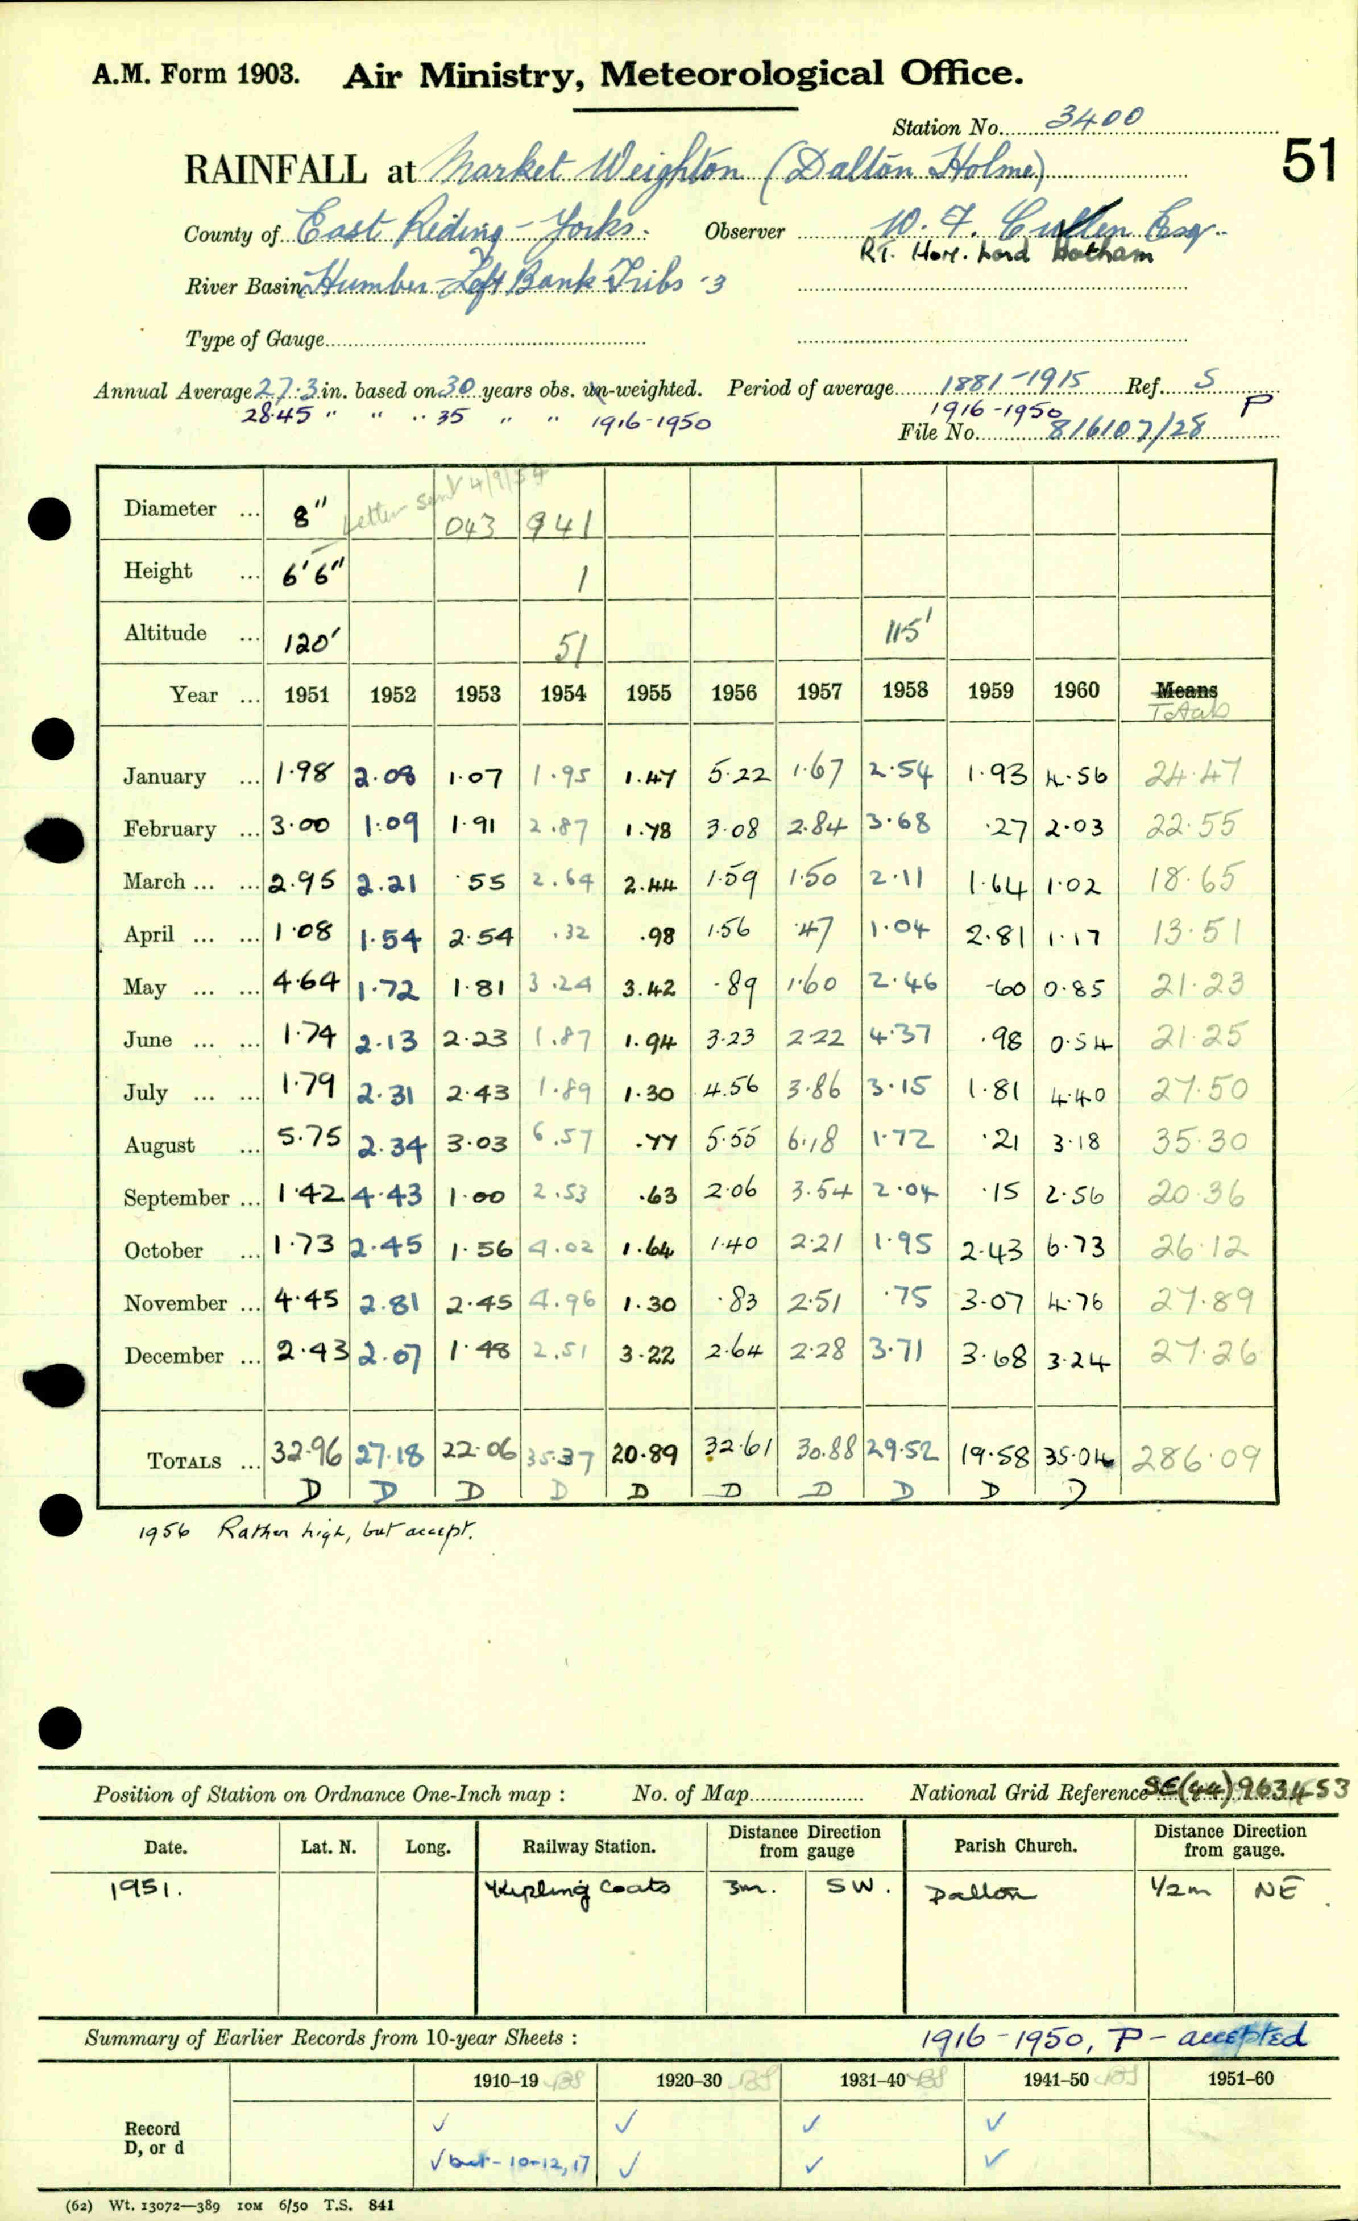 A.M. Form 1903. Air Ministry, Meteorological Office.
Station No. 3400
51
RAINFALL at Market Weighton (Dalton Holme)
County of East Riding - Yorks. Observer W. F. Cullen Esq.
Rt. Hon. Lord Hotham
River Basin Humber Left Bank Tribs 3
Type of Gauge
Annual Average 27.3 in. based on 30 years obs. un-weighted. Period of average 1881-1915 Ref. S
28.45 " " " 35 " " 1916-1950 1916-1950 P
File No. 816107/28
Letter sent 4/9/54
Diameter ... 8" 043 941
Height ... 6'6" 1
Altitude ... 120' 51 115'
Year ... 1951 1952 1953 1954 1955 1956 1957 1958 1959 1960 Means
Totals
January ... 1.98 2.08 1.07 1.95 1.47 5.22 1.67 2.54 1.93 4.56 24.47
February ... 3.00 1.09 1.91 2.87 1.78 3.08 2.84 3.68 .27 2.03 22.55
March ... ... 2.95 2.21 .55 2.64 2.44 1.59 1.50 2.11 1.64 1.02 18.65
April ... ... 1.08 1.54 2.54 .32 .98 1.56 .47 1.04 2.81 1.17 13.51
May ... ... 4.64 1.72 1.81 3.24 3.42 .89 1.60 2.46 .60 0.85 21.23
June ... ... 1.74 2.13 2.23 1.87 1.94 3.23 2.22 4.37 .98 0.54 21.25
July ... ... 1.79 2.31 2.43 1.89 1.30 4.56 3.86 3.15 1.81 4.40 27.50
August ... 5.75 2.34 3.03 6.57 .77 5.55 6.18 1.72 .21 3.18 35.30
September ... 1.42 4.43 1.00 2.53 .63 2.06 3.54 2.04 .15 2.56 20.36
October ... 1.73 2.45 1.56 4.02 1.64 1.40 2.21 1.95 2.43 6.73 26.12
November ... 4.45 2.81 2.45 4.96 1.30 .83 2.51 .75 3.07 4.76 27.89
December ... 2.43 2.07 1.48 2.51 3.22 2.64 2.28 3.71 3.68 3.24 27.26
TOTALS ... 32.96 27.18 22.06 35.37 20.89 32.61 30.88 29.52 19.58 35.04 286.09
D D D D D D D D D D
1956 Rather high, but accept.
Position of Station on Ordnance One-Inch map : No. of Map National Grid Reference SE(44)963453
Date. Lat. N. Long. Railway Station. Distance Direction from gauge Parish Church. Distance Direction from gauge.
1951. Kipling Coats 3m. SW. Dalton 1/2m NE
Summary of Earlier Records from 10-year Sheets : 1916-1950, P - accepted
1910–19 1920–30 1931–40 1941–50 1951–60
Record ✓ ✓ ✓ ✓
D, or d ✓ but - 10-12, 17 ✓ ✓ ✓
(62) Wt. 13072—389 10M 6/50 T.S. 841